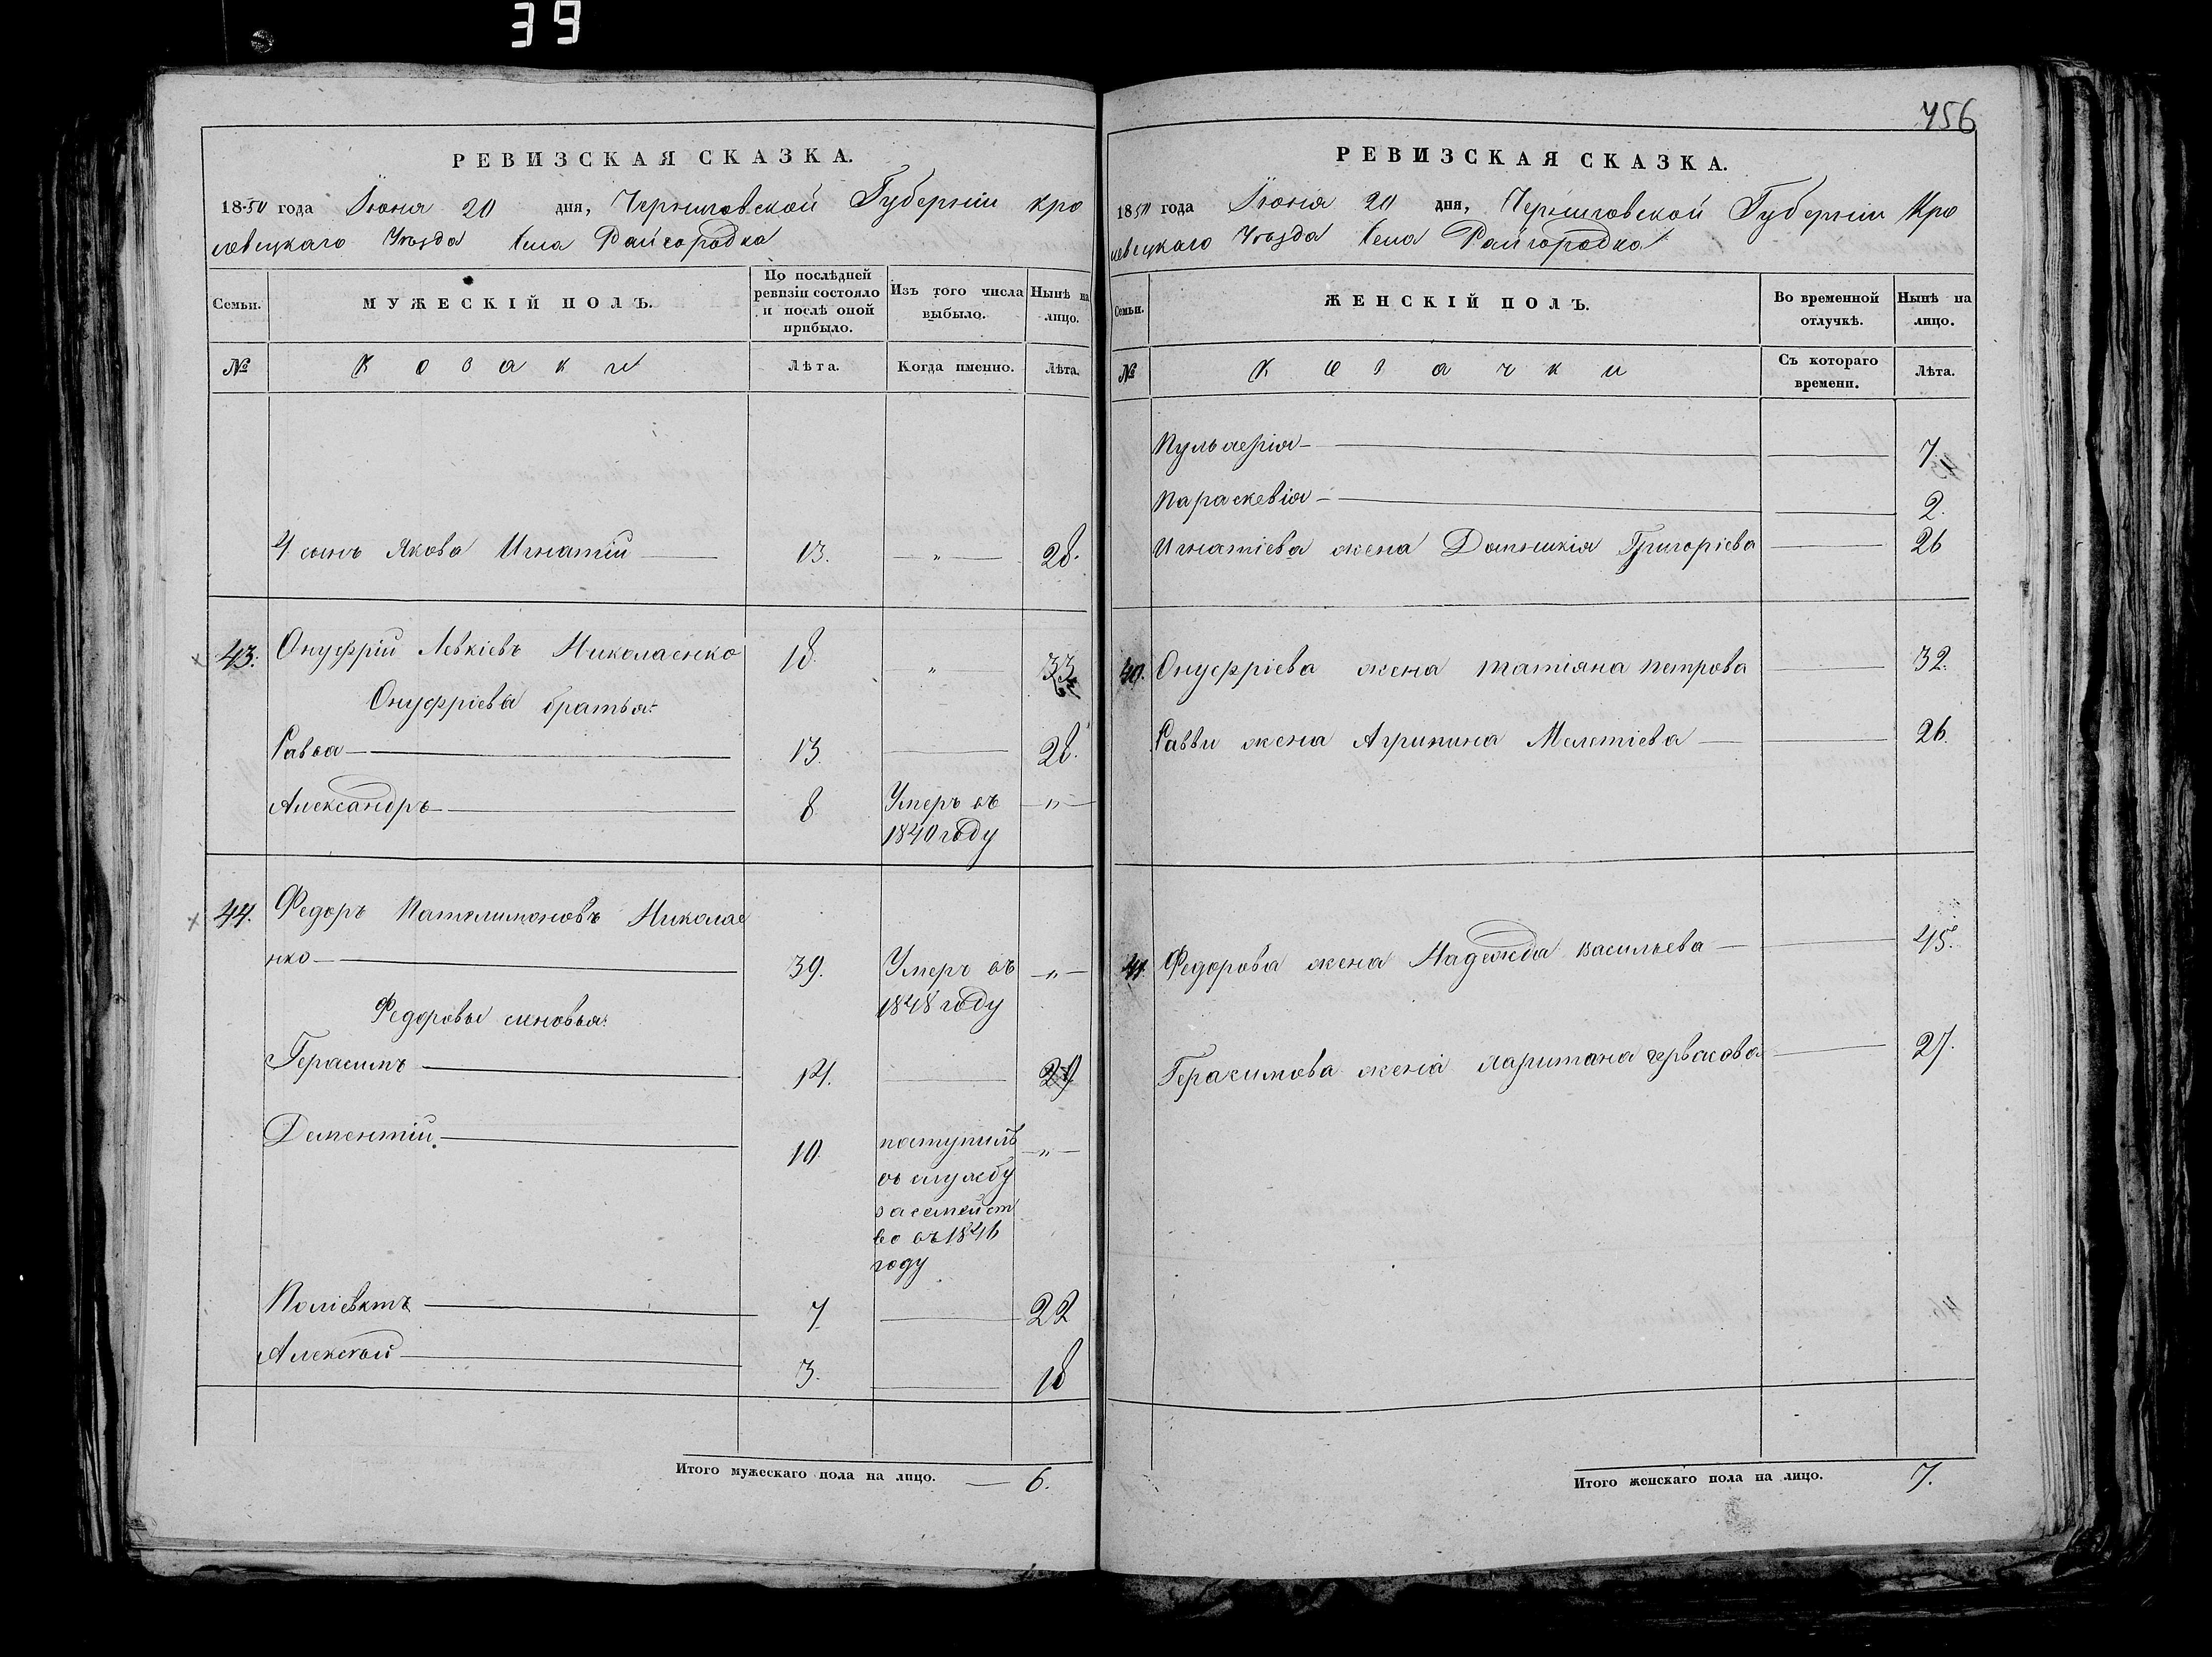 39
РЕВИЗСКАЯ СКАЗКА.
1850 года Іюня 20 дня, Черниговской Губерніи Кро
левецкаго Уѣзда Села Райгородка
Семьи.
МУЖЕСКІЙ ПОЛЪ.
По послѣдней ревизіи состояло и послѣ оной прибыло.
Изъ того числа выбыло.
Нынѣ на лицо.
№
Козаки
Лѣта.
Когда именно.
Лѣта.
4 сынъ Якова Игнатій 13. " 28.
43. Онуфрій Левкіевъ Николаенко 18 " 33
Онуфріева братья:
Савва 13. 28.
Александръ 8 Умеръ въ "
1840 году
44. Федоръ Пателимоновъ Николае
нко 39. Умеръ въ "
1848 году
Федоровы сыновья:
Герасимъ 14. 29
Дементій. 10. поступилъ "
въ службу
за семейст
во въ 1846
году
Поліевктъ 7. 22
Алексѣй 3. 18
Итого мужескаго пола на лицо. 6.
456
РЕВИЗСКАЯ СКАЗКА.
1850 года Іюня 20 дня, Черниговской Губерніи Кро
левецкаго Уѣзда Села Райгородка
Семьи.
ЖЕНСКІЙ ПОЛЪ.
Во временной отлучкѣ.
Нынѣ на лицо.
№
Козачки
Съ котораго времени.
Лѣта.
Пульхерія 7.
Параскевія 2.
Игнатіева жена Домникія Григоріева 26
Онуфріева жена Татіяна Петрова 32.
Саввы жена Агрипина Мелетіева 26.
44. Федорова жена Надежда Васильева 45.
Герасимова жена 27.
Итого женскаго пола на лицо. 7.